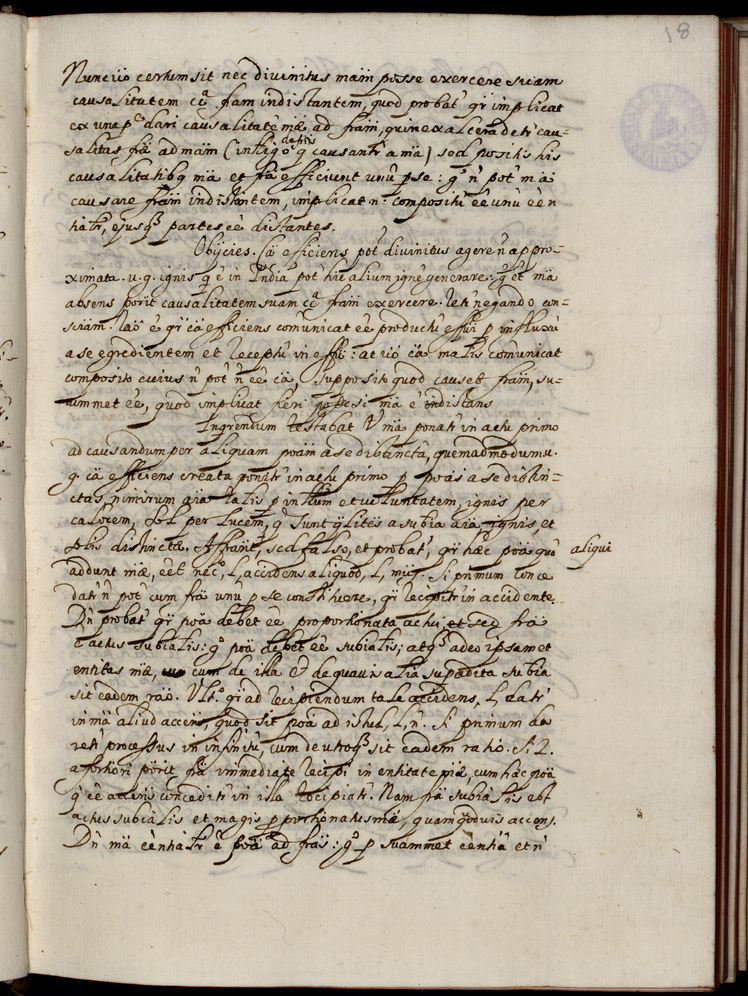 18
Nunc uo certum sit nec divinitus mam posse exercere suam
causalitatem ca fram indistantem, quod probat' qr implicat
ex una pe dari causalitate mæ ad fram, quin ex altera detr cau=
salitas fræ ad mam (intelligo de his q causantr a ma) sed positis his
causalitatibq ma et fra efficiunt unu p se: go n pot ma
causare fram indistantem, implicat n. compositu ee unu een
tiatr, ejusq3 partes ee distantes.
Obijcies. Ca efficiens pot divinitus agere n appro=
ximata. u. g. ignis q e in India pot hic alium igne generare: go et ma
absens poterit causalitatem suam ca fram exercere. negando con=
sequam. Rao e qr ca efficiens comunicat ee productu effui p influxu
a se egredientem et receptu in effu: at uo ca malis comunicat
composito cuius n pot n ee ca, supposito quod causet fram, su=
ammet ee, quod implicat fieri si ma e indistans
Inqrendum restabat Ur ma ponatr in actu primo
ad causandum per aliquam poam a se distincta, quemadmodum u.
g. ca efficiens creata ponitr in actu primo p poas a se distin=
ctas, nimirum aia ralis p intum et uoluntatem, ignis per
calorem, sol per lucem, q sunt qlites a subia aiæ ignis, et
solis distinctæ. Affirant, sed falso, et probatr, qr hæc poa quo aliqui
addunt mæ, eet nec. l, accidens aliquod, l, mug. Si primum conce
datr n pot cum fra unu p se constituere, qr recipitr in accidente.
Dn probatr qr poa debet ee proportionata actui et sed fra
e actus subialis: go poa debet ee subialis; atq3 adeo ipsamet
entitas mæ, cum de illa et de quauis alia supaddita subia
sit eadem rao. Ult. qr ad recipiendum tale accidens, l, datr
in ma aliud accns, quod sit poa ad istud, l, n. Si primum da
retr processus in infinitu, cum de utroq3 sit eadem ratio. Si 2.
a fortiori poterit fra immediate recipi in entitate piæ, cum hæc poa
q ee accns conceditr in illa recipiatr. Nam fra subialis est
actus subialis et magis pportionatus mæ, quam qoduis accens.
Dn ma eentiatr e poa ad fras: go p suammet eentia et n